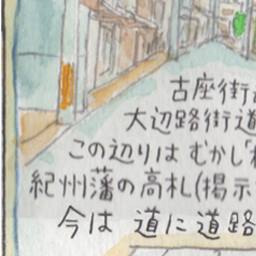 古座街
大辺路街道
この辺りは むかし「
紀州藩の高札(掲示
今は 道に道路